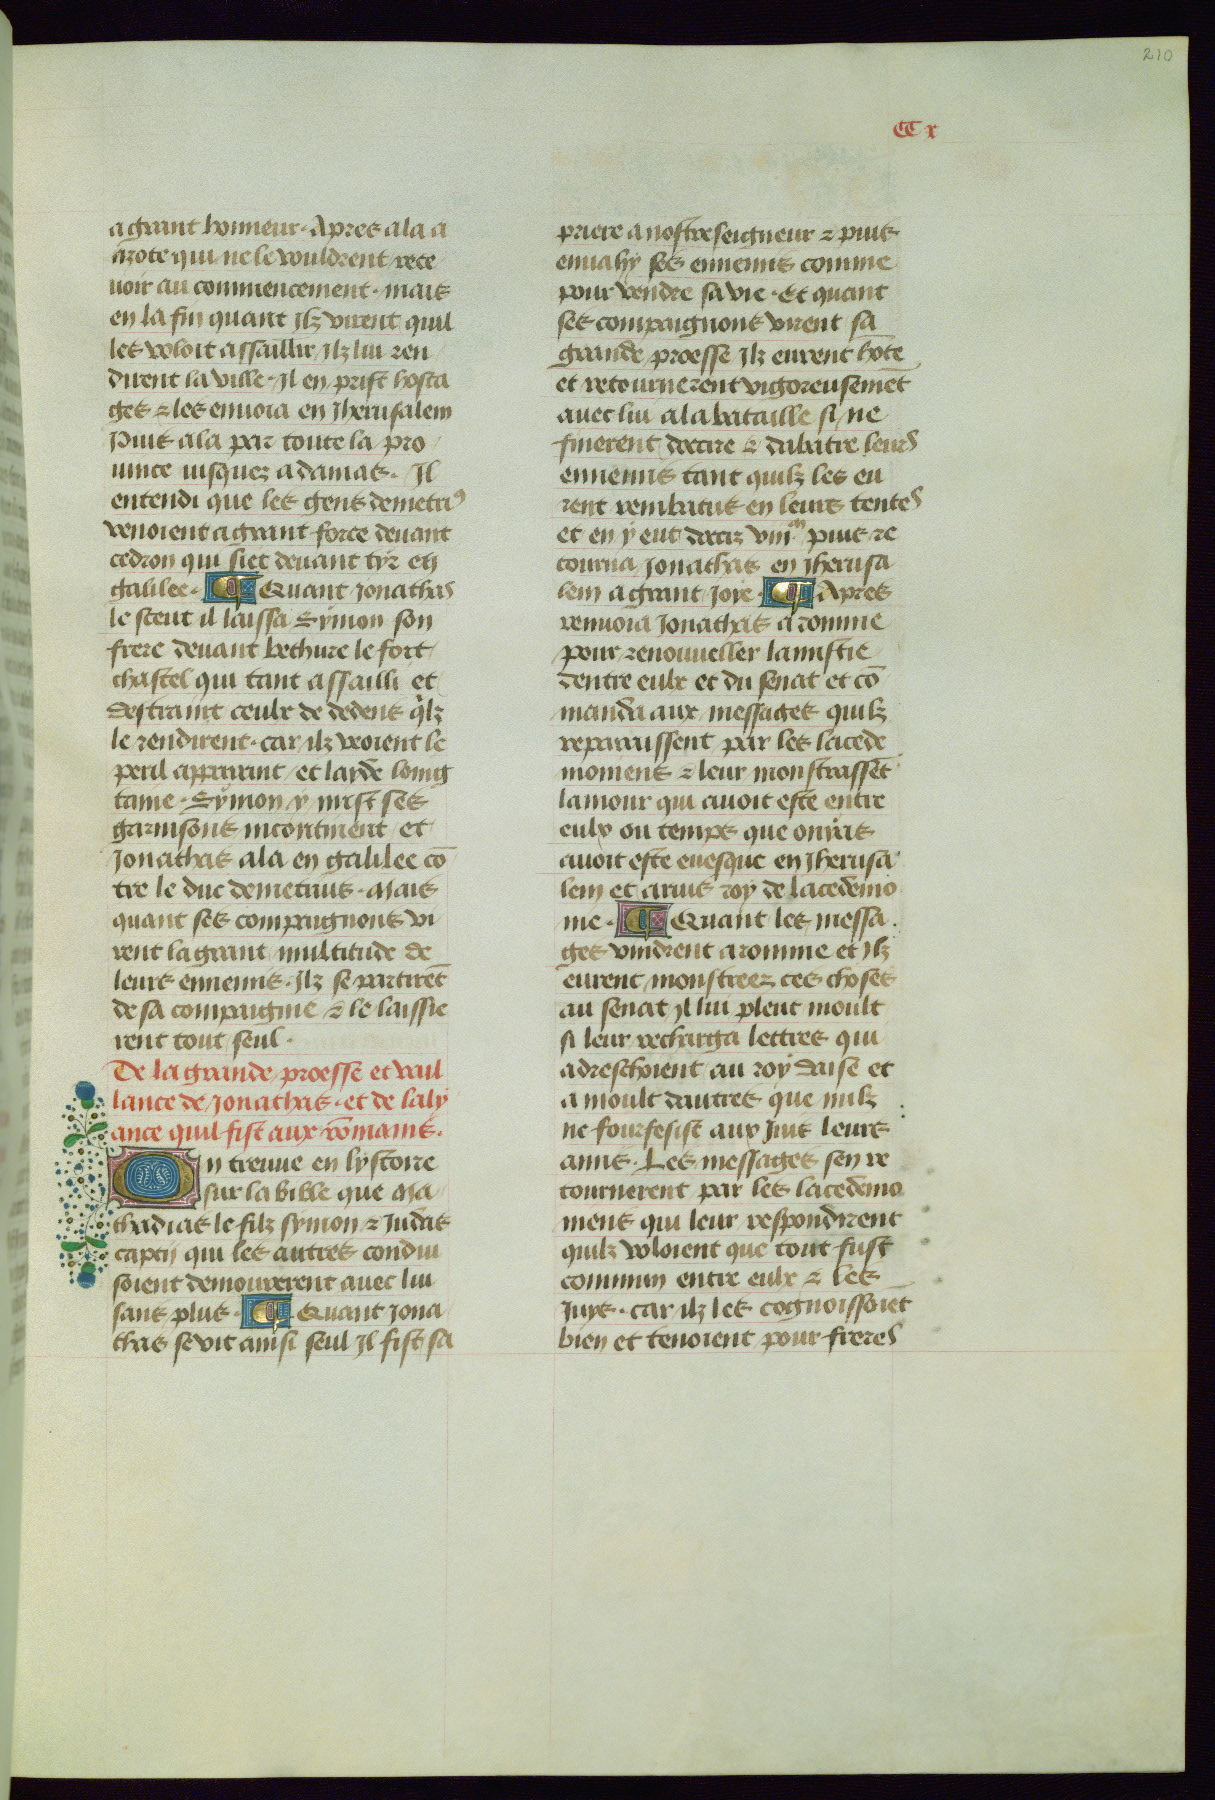 210
CC x
a grant honneur. Apres ala a
azote qui ne le vouldrent rece
uoir au commencement. mais
en la fin quant Ilz virent quil
les voloit assaillir / Ilz lui ren
dirent la ville. Il en prist hosta
ges & les enuoia en Jherusalem
Puis ala par toute la pro
uince iusquez a damas. Il
entendi que les gens demetri9
venoient a grant force deuant
cedron qui siet deuant tyr en
galilee. ¶ Quant Jonathas
le sceut il laissa Symon son
frere deuant bethure le fort
chastel qui tant assailli et
destraint ceulx de dedens qilz
le rendirent. car ilz veoient le
peril apparant / et larde loing
taine. Symon y mist ses
garnisons incontinent et
Jonathas ala en galilee cō
tre le duc demetrius. Mais
quant ses compaignons vi
rent la grant multitude de
leurs ennemis. Ilz se partirēt
de sa compaignie & le laissie
rent tout seul.
De la grande proesse et vail
lance de Jonathas. et de laly
ance quil fist aux rōmains.
On treuue en lystoire
sur la bible que Ma
thadias le filz symon & Judas
captin qui les autres condui
soient demourerent auec lui
sans plus. ¶ Quant Jona
thas se vit ainsi seul Il fist sa
priere a nostre seigneur & puis
enuahy ses ennemis comme
pour vendre sa vie. Et quant
ses compaignons virent sa
grande proesse Ilz eurent hōte
et retournerent vigoreusemēt
auec lui a la bataille si ne
finerent doccire & dabatre leurs
ennemis tant quilz les eu
rent rembatus en leurs tentes
et en y eut doccis viii.m puis re
tourna Jonathas en Jherusa
lem a grant Joye. ¶ Apres
renuoia Jonathas a romme
pour renouueller lamistie
dentre eulx et du senat et cō
manda aux messages quilz
reparaissent par les lacede
moniens & leur monstrassēt
lamour qui auoit este entre
eulx ou temps que onyas
auoit este euesque en Jherusa
lem et arius roy de lacedemo
nie. ¶ Quant les messa
ges vindrent a romme et Ilz
eurent monstreez ces choses
au senat Il lui pleut moult
si leur recharga lettres qui
adreschoient au roy daise et
a moult dautres que nulz
ne fourfesist aux Juis leurs
amis. Les messages sen re
tournerent par les lacedemo
niens qui leur respondirent
quilz voloient que tout fust
commun entre eulx & les
Juys. car ilz les cognoissoiēt
bien et tenoient pour freres